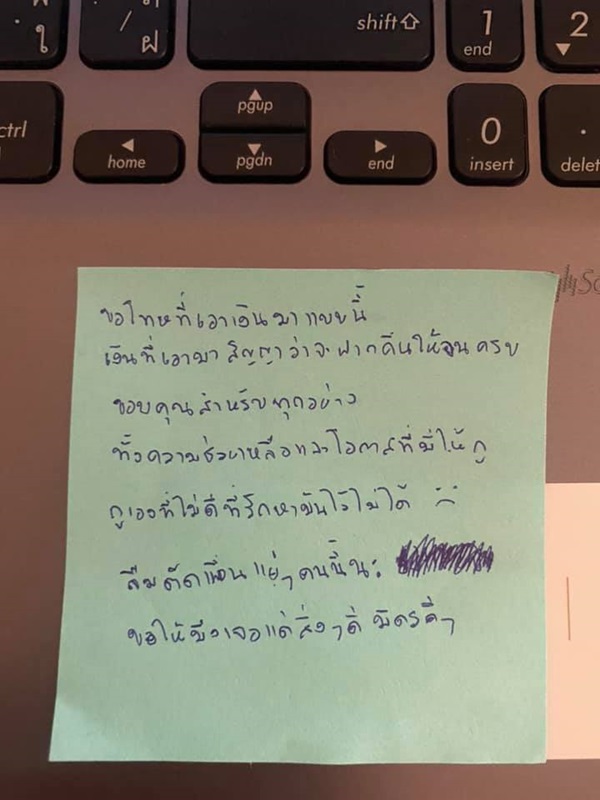 ใ
/
ฝ
shift
1
end
2
ctrl
pgup
home
pgdn
end
0
insert
.
delet
So
ขอโทษที่เอาเงินมาแบบนี้
เงินที่เอามา สัญญาว่าจะฝากคืนให้จนครบ
ขอบคุณสำหรับทุกอย่าง
ทั้งความช่วยเหลือและโอกาสที่มีให้กู
กูเองที่ไม่ดีที่รักษามันไว้ไม่ได้
ลืมตัดเพื่อนแย่ๆคนนี้นะ
ขอให้มึงเจอแต่สิ่งๆดี มิตรดีๆ